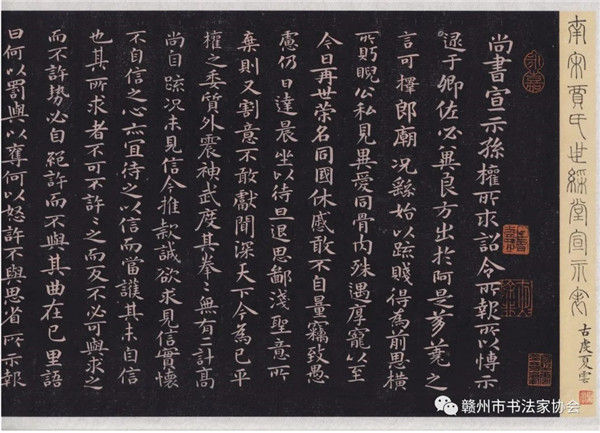 南宋賈氏世綵堂宣示表
古虔夏雲
尚書宣示孫權所求詔令所報所以博示
逮于卿佐必冀良方出於阿是芻蕘之
言可擇郎廟況繇始以疏賤得為前恩橫
所盻睨公私見異愛同骨肉殊遇厚寵以至
今日再世榮名同國休慼敢不自量竊致愚
慮仍日達晨坐以待旦退思鄙淺聖意所
棄則又割意不敢獻聞深天下今為已平
權之委質外震神武度其拳々無有二計高
尚自疏況未見信今推款誠欲求見信實懷
不自信之心亦宜待之以信而當護其未自信
也其所求者不可不許々之而反不必可與求之
而不許勢必自絕許而不與其曲在己里語
曰何以罰與以奪何以怒許不與思省所示報
赣州市书法家协会